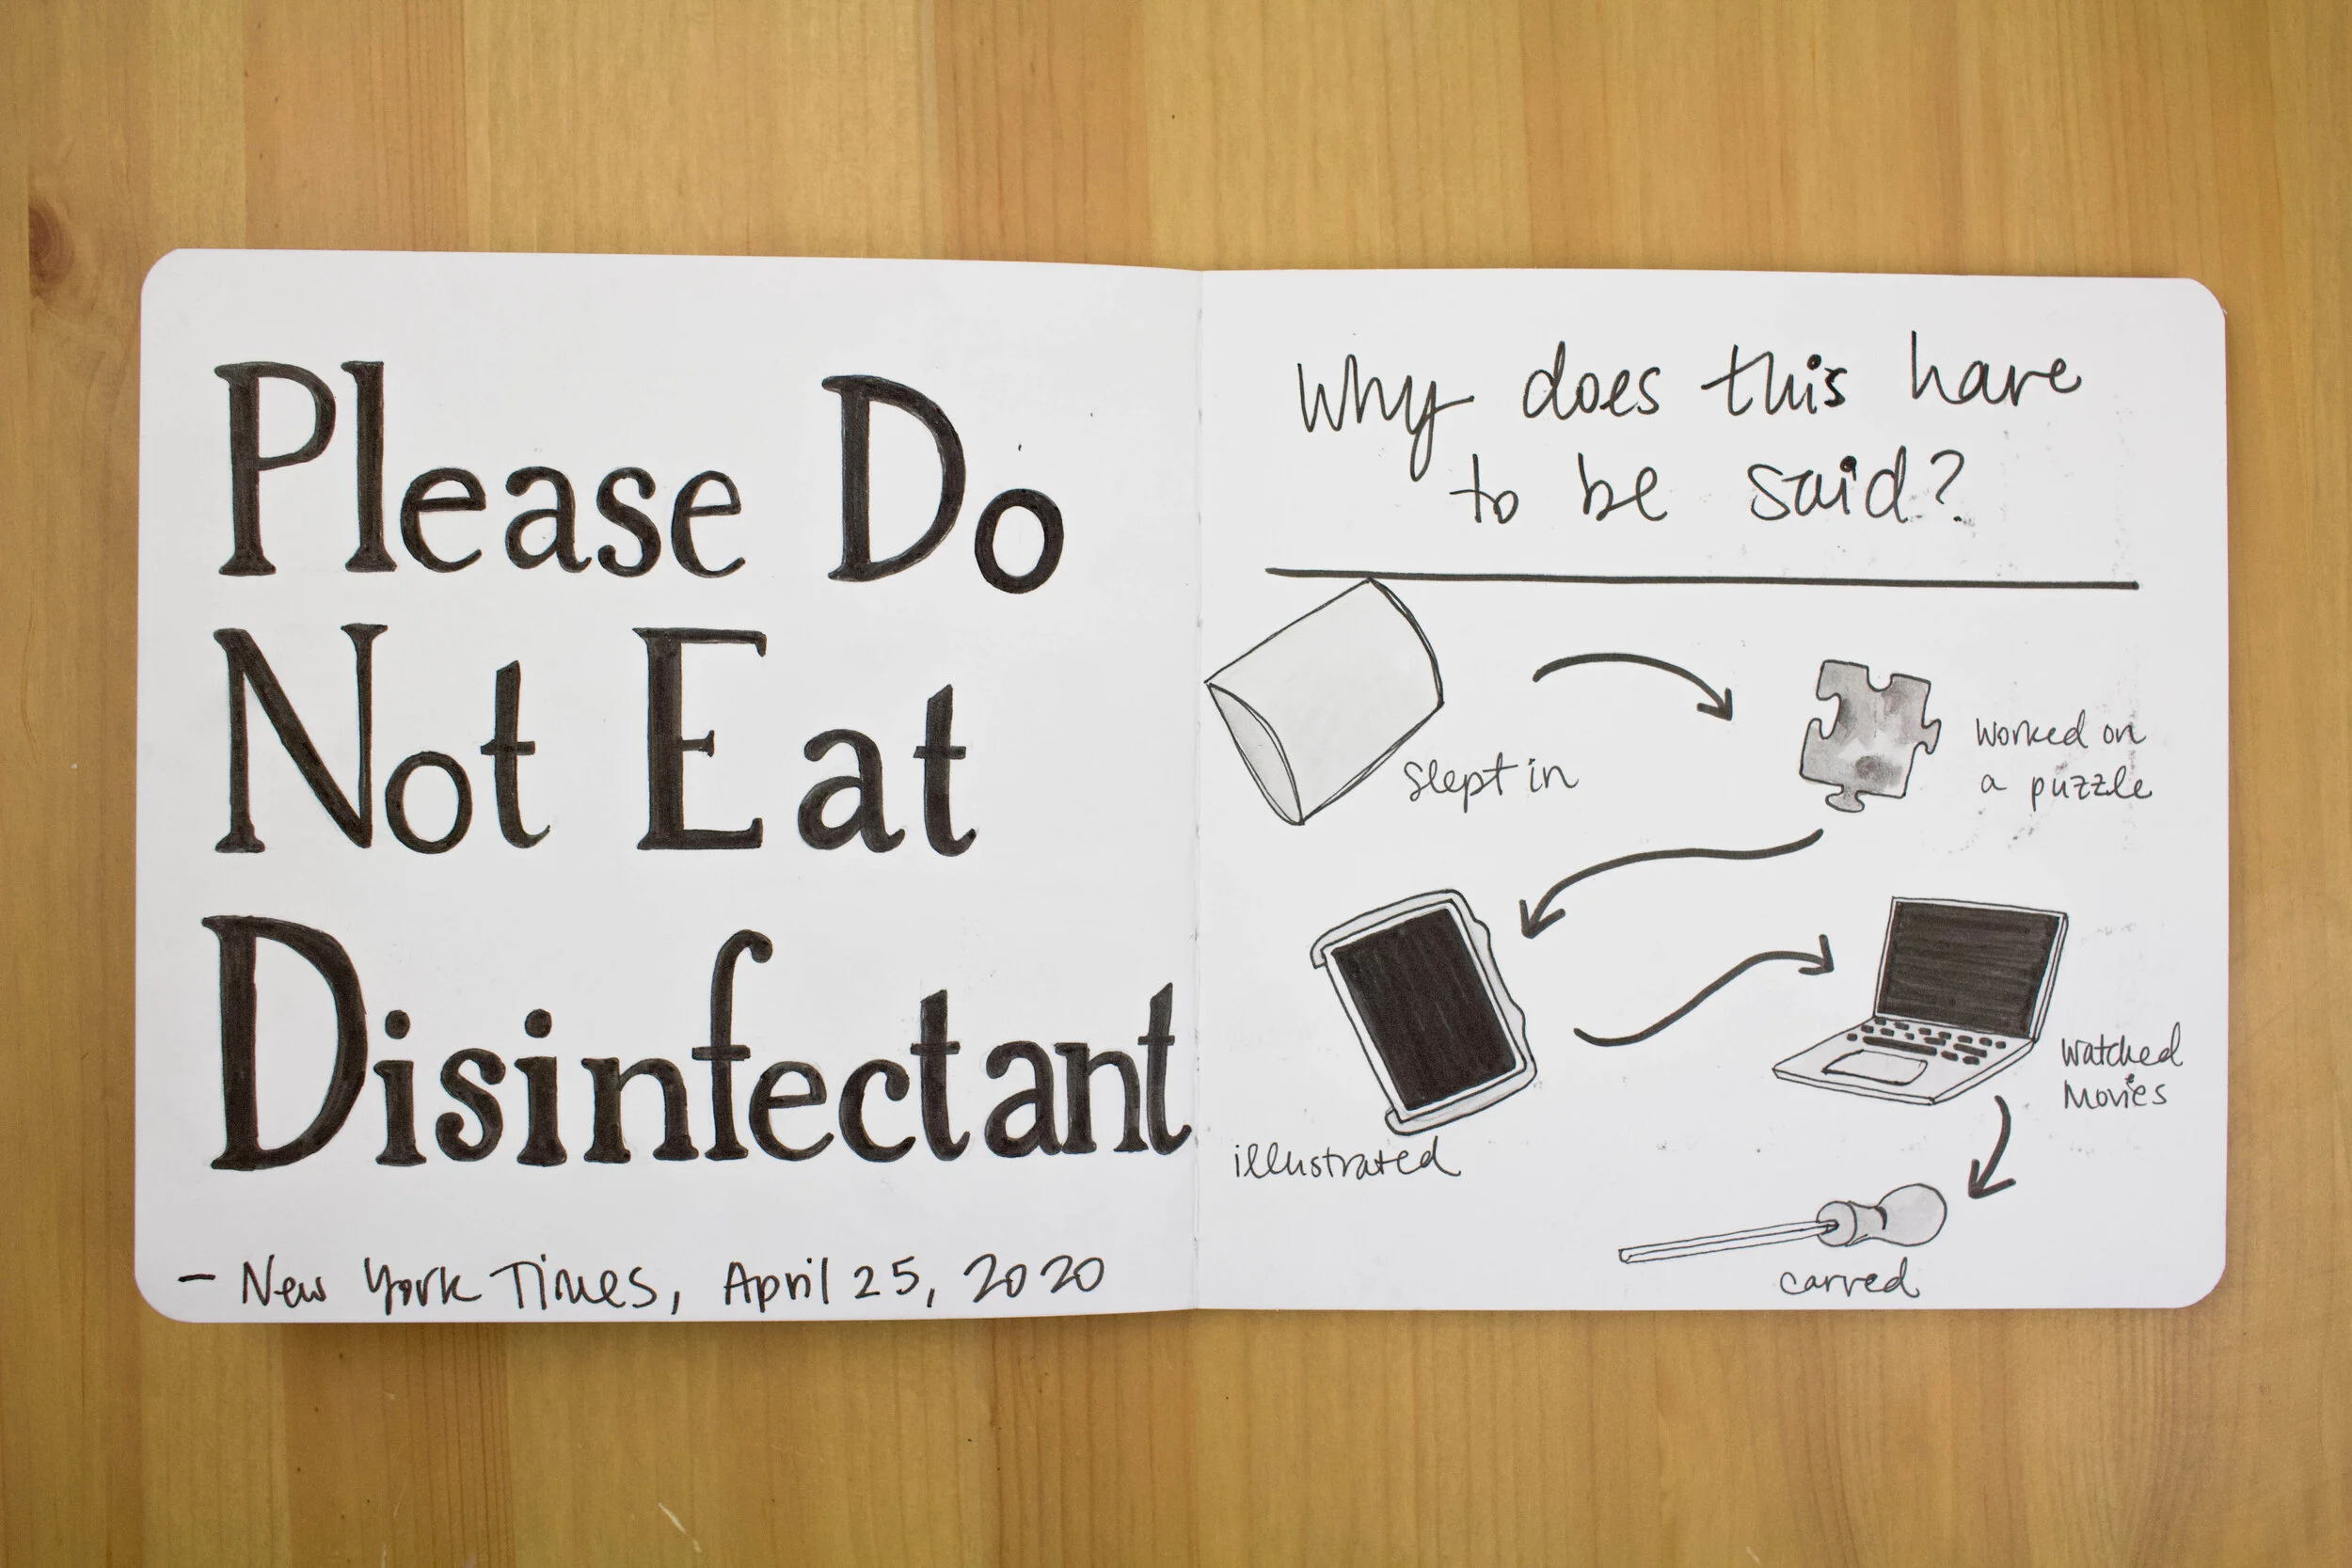 Please Do
Not Eat
Disinfectant
- New York Times, April 25, 2020
Why does this have
to be said?
slept in
worked on
a puzzle
illustrated
watched
Movies
carved